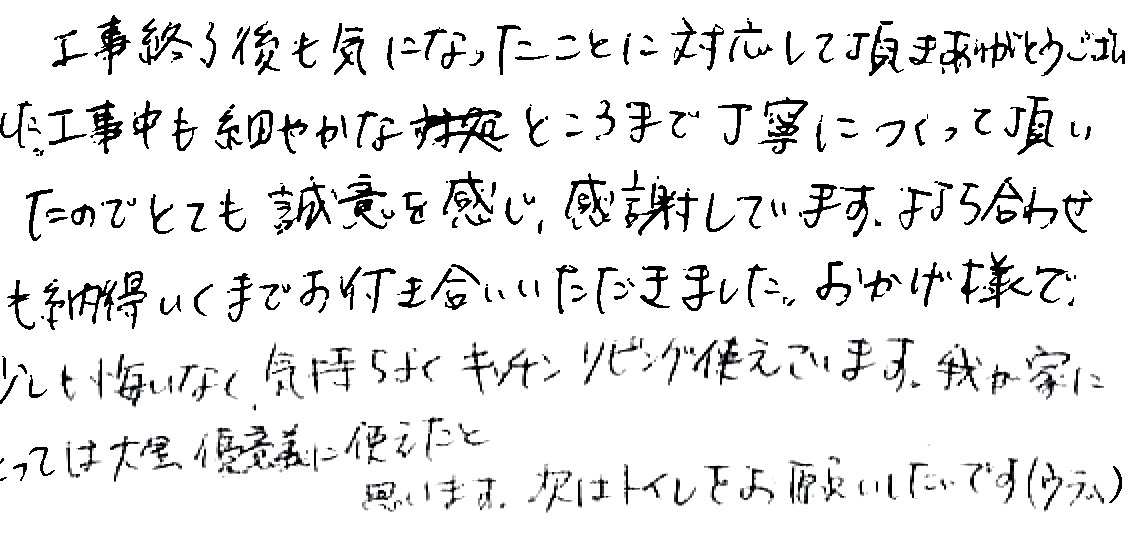 工事終了後も気になったことに対応して頂きありがとうござい
した。工事中も細やかなところまで丁寧につくって頂い
たのでとても誠意を感じ、感謝しています。打ち合わせ
も納得いくまでお付き合いいただきました。おかげ様で、
少しも悔いなく、気持ちよくキッチンリビング使えています。我が家に
とっては大変有意義に使えたと
思います。次はトイレをお願いしたいです